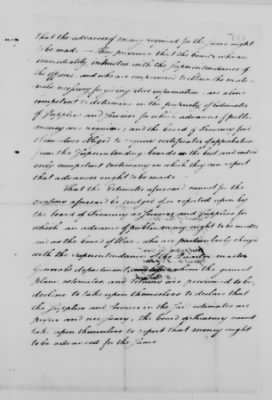 that the advances of money required for the same ought
to be made. — They perceive that the boards who are
immediately intrusted with the Superintendance of
the offices, and who are empowered to
for giving due information, are alone
competent to determine on the propriety of Estimates
of supplies and Services for which advances of public
money are required; and the board of Treasury
themselves obliged to require certificates of approbation
from the Superintending boards as the best and indeed
only competent testimony on which they can report
that advances ought to be made. —
That the Estimates aforesaid cannot for the
reasons aforesaid be judged of or reported upon by
the board of Treasury as Services and supplies for
which an advance of public money ought to be made,
in as the board of War, who are particularly charged
with the Superintendance of the Quarter master
Generals department, and from the general
plans estimates and returns are
decline to take upon themselves to declare that
the supplies and Services in the estimates are
proper and necessary, the board of Treasury cannot
take upon themselves to report that money ought
to be advanced for the same